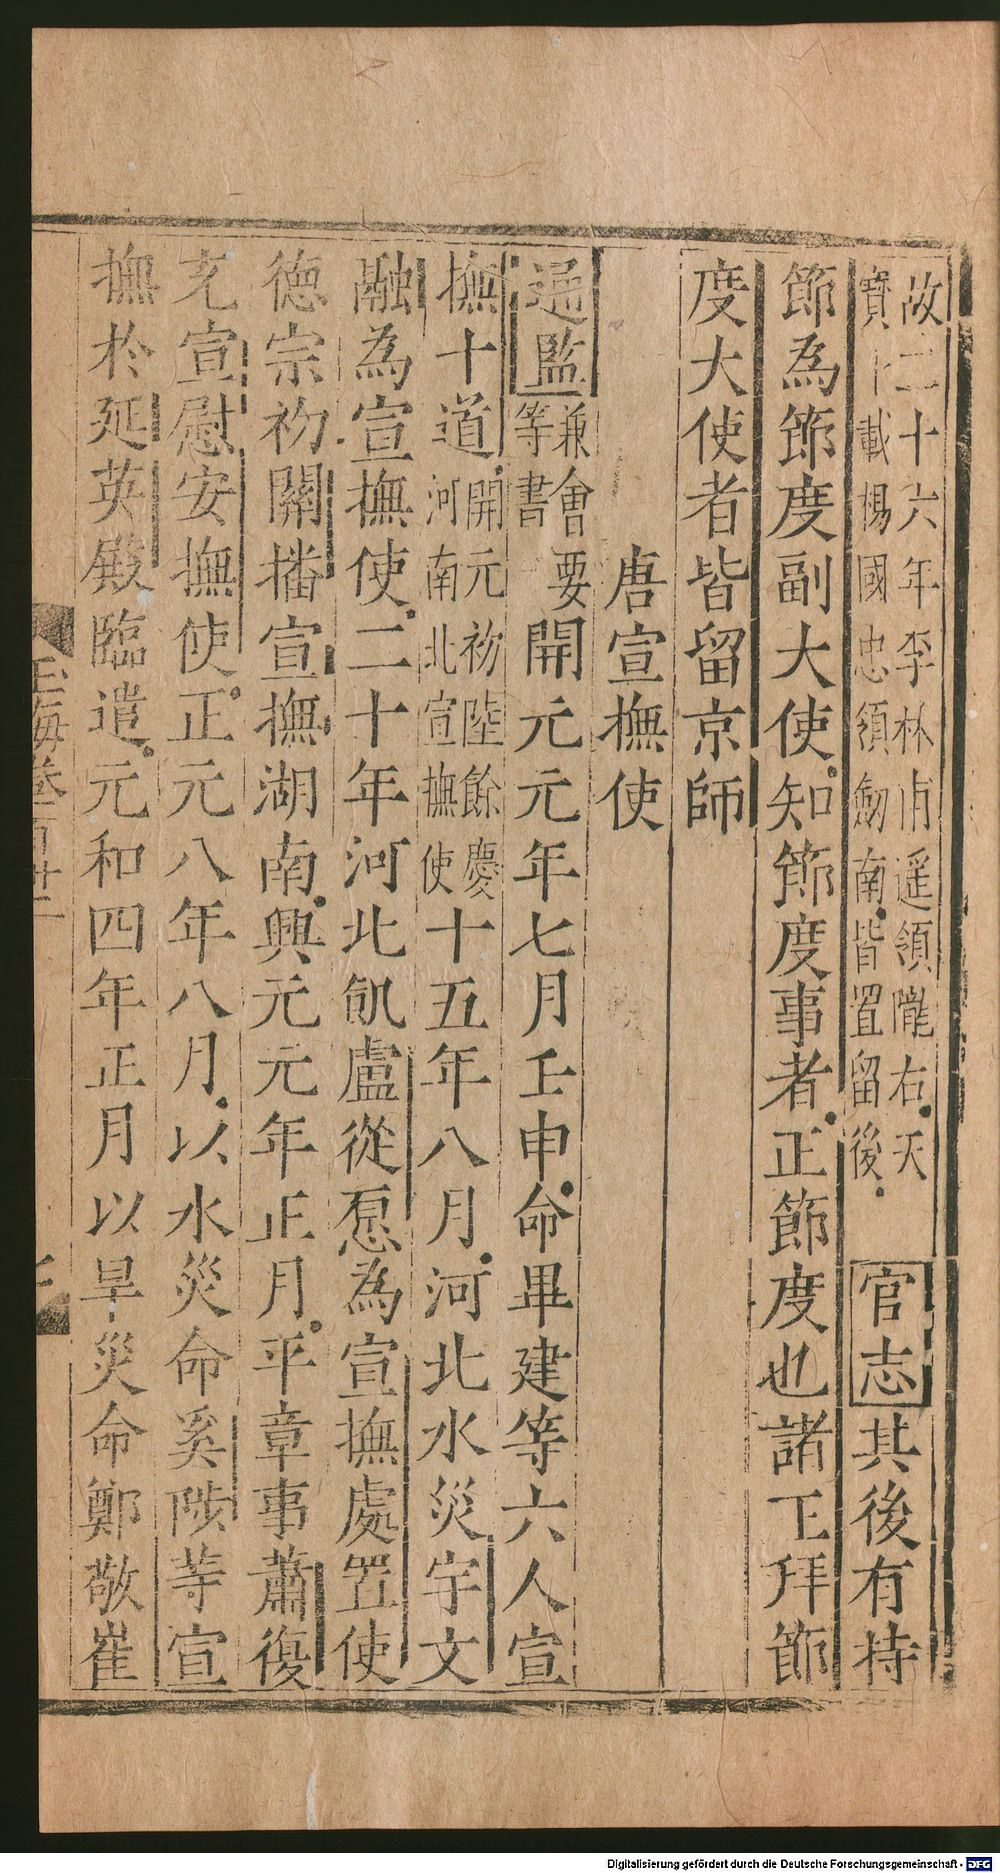 故二十六年李林甫遥領隴右天
寶十載楊國忠領劒南皆置留後
官志其後有持
節為節度副大使知節度事者正節度也諸王拜節
度大使者皆留京師
唐宣撫使
通監
兼會要
等書
開元元年七月壬申命畢建等六人宣
撫十道
開元初陸餘慶
河南北宣撫使
十五年八月河北水災宇文
融為宣撫使二十年河北飢盧從愿為宣撫處置使
德宗初關播宣撫湖南興元元年正月平章事蕭復
充宣慰安撫使正元八年八月以水災命奚陟等宣
撫於延英殿臨遣元和四年正月以旱災命鄭敬崔
玉海卷百廿二
Digitalisierung gefördert durch die Deutsche Forschungsgemeinschaft - DFG